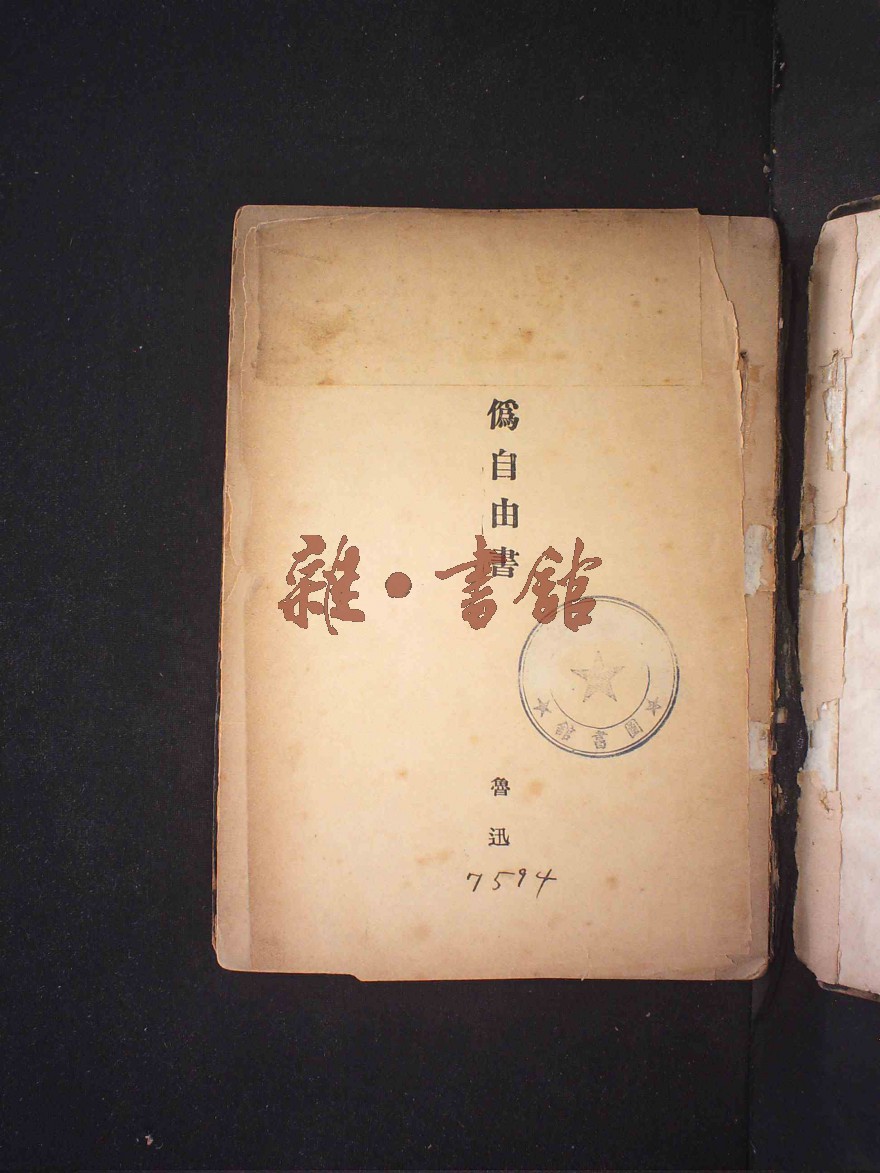 僞自由書
雜·書館
圖書館
魯迅
7594